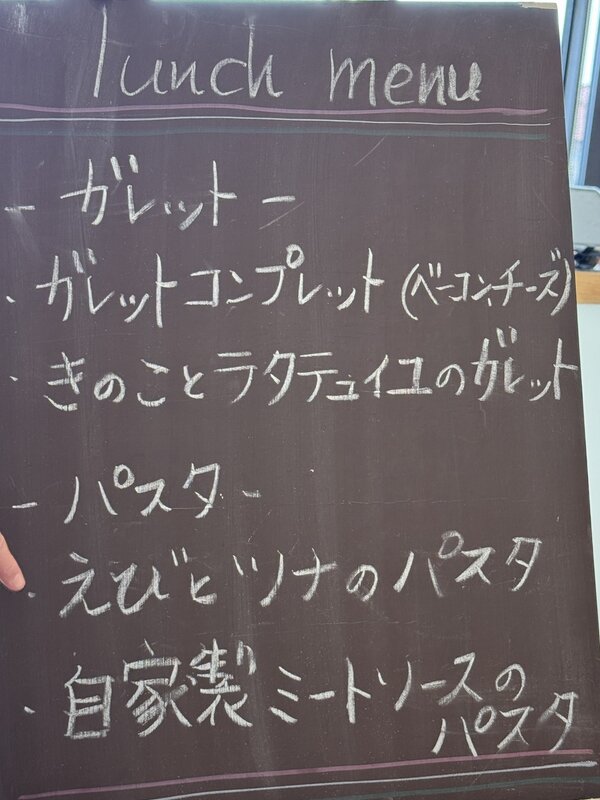 lunch menu
- ガレット -
・ガレットコンプレット(ベーコン、チーズ)
・きのことラタテュイユのガレット
- パスタ -
・えびとツナのパスタ
・自家製ミートソースの
パスタ